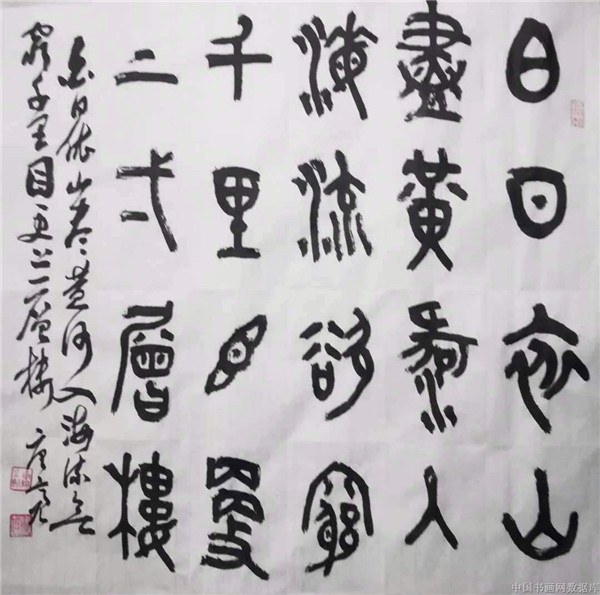 白日依山
盡黃河入
海流欲窮
千里目更
上弌層樓
白日依山尽黄河入海流欲
窮千里目更上一層楼
中国书画网数据库